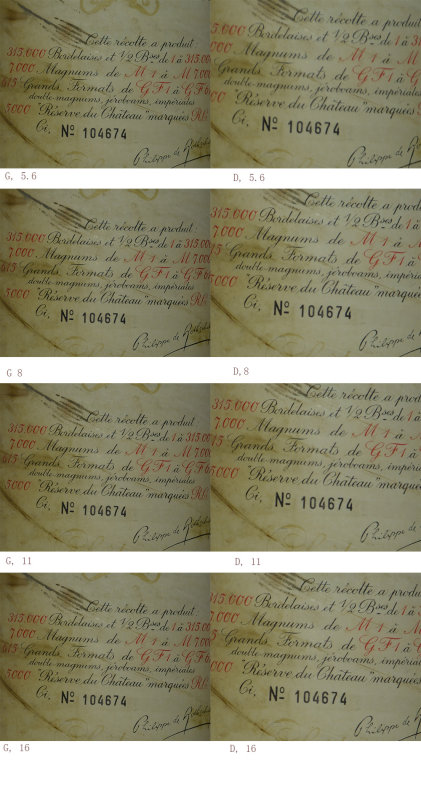 Cette récolte a produit
315.000 Bordelaises et 1/2 Bses de 1 à 315.00
7000 Magnums de M 1 à M 7.00
615 Grands Formats de G F 1 à G F 6
double-magnums, jéroboams, impériales
5000 "Réserve du Château" marquées R.
Ci, Nº 104674
Philippe de
G, 5.6
Cette récolte a produit
5.000 Bordelaises et 1/2 Bses de 1 à 31
000 Magnums de M 1 à M
Grands Formats de G F 1 à G
double-magnums, jéroboams, impériales
000 "Réserve du Château" marquées
Ci, Nº 104674
Philippe de
D, 5.6
Cette récolte a produit
315.000 Bordelaises et 1/2 Bses de 1 à 315.00
7000 Magnums de M 1 à M 7.00
615 Grands Formats de G F 1 à G F 6
double-magnums, jéroboams, impériales
5000 "Réserve du Château" marquées R.
Ci, Nº 104674
Philippe de
G 8
Cette récolte a produ
315.000 Bordelaises et 1/2 Bses de 1 à
7000 Magnums de M 1 à
615 Grands Formats de G F 1 à
double-magnums, jéroboams, impéria
5000 "Réserve du Château" marquée
Ci, Nº 104674
Philippe
D,8
Cette récolte a produit
315.000 Bordelaises et 1/2 Bses de 1 à 315.00
7000 Magnums de M 1 à M 7.00
615 Grands Formats de G F 1 à G F 6
double-magnums, jéroboams, impériales
5000 "Réserve du Château" marquées R.
Ci, Nº 104674
Philippe de
G, 11
Cette récolte a produ
315.000 Bordelaises et 1/2 Bses de 1 à
7000 Magnums de M 1 à
615 Grands Formats de G F 1 à
double-magnums, jéroboams, impéria
5000 "Réserve du Château" marquée
Ci, Nº 104674
Philippe
D, 11
Cette récolte a produit
315.000 Bordelaises et 1/2 Bses de 1 à 315.00
7000 Magnums de M 1 à M 7.00
615 Grands Formats de G F 1 à G F 6
double-magnums, jéroboams, impériales
5000 "Réserve du Château" marquées R.
Ci, Nº 104674
Philippe de
G, 16
Cette récolte a produ
15.000 Bordelaises et 1/2 Bses de 1 à
7000 Magnums de M 1 à M
5 Grands Formats de G F 1 à G
double-magnums, jéroboams, impérial
000 "Réserve du Château" marquées
Ci, Nº 104674
Philippe de
D, 16